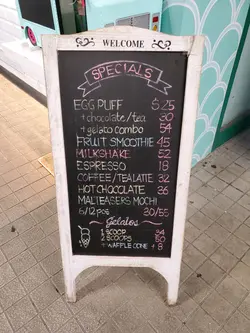 WELCOME
SPECIALS
EGG PUFF $25
+chocolate/tea 30
+gelato combo 54
FRUIT SMOOTHIE 45
MILKSHAKE 52
ESPRESSO 18
COFFEE/TEA LATTE 32
HOT CHOCOLATE 36
MALTEASERS MOCHI
6/12 pcs 30/55
Gelatos
1 SCOOP 34
2 SCOOPS 50
+ WAFFLE CONE + 8